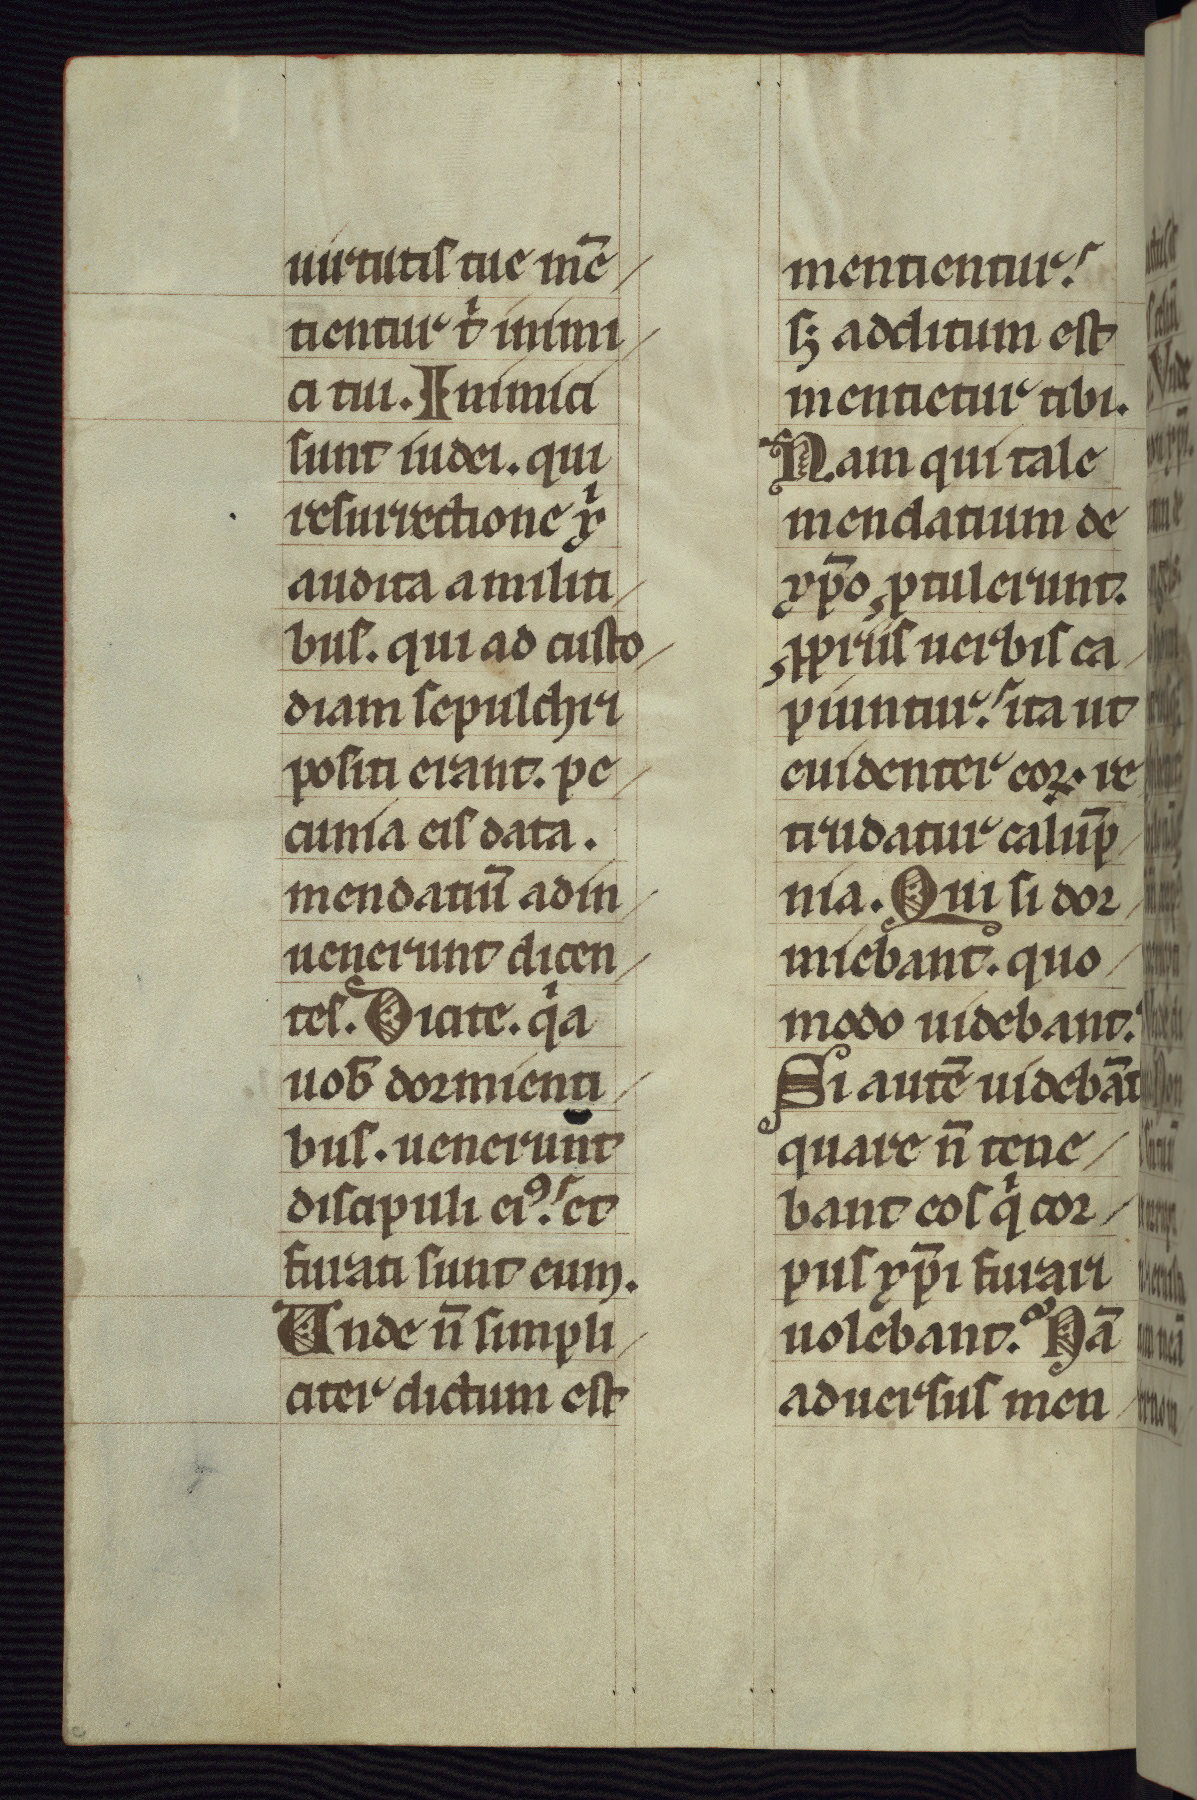 uirtutis tue mē
tientur tͥ inimi
ci tui. Inimici
sunt iudei. qui
resurrectione xͥ
audita a militi
bus. qui ad custo
diam sepulchri
positi erant. pe
cunia eis data.
mendatiū adin
uenerunt dicen
tes. Dicite. qͥa
uob̄ dormienti
bus. uenerunt
discipuli eiꝰ. et
furati sunt eum.
Unde n̄ simpli
citer dictum est
mentientur.
sꝫ additum est
mentietur tibi.
Nam qui tale
mendatium de
xp̄o ꝓtulerunt.
ꝓpriis uerbis ca
piuntur. ita ut
euidenter eoꝝ. re
trudatur calūp
nia. Qui si dor
miebant. quo
modo uidebant.
Si autē uidebāt
quare n̄ tene
bant eos qͥ cor
pus xp̄i furari
uolebant. Nā
aduersus men